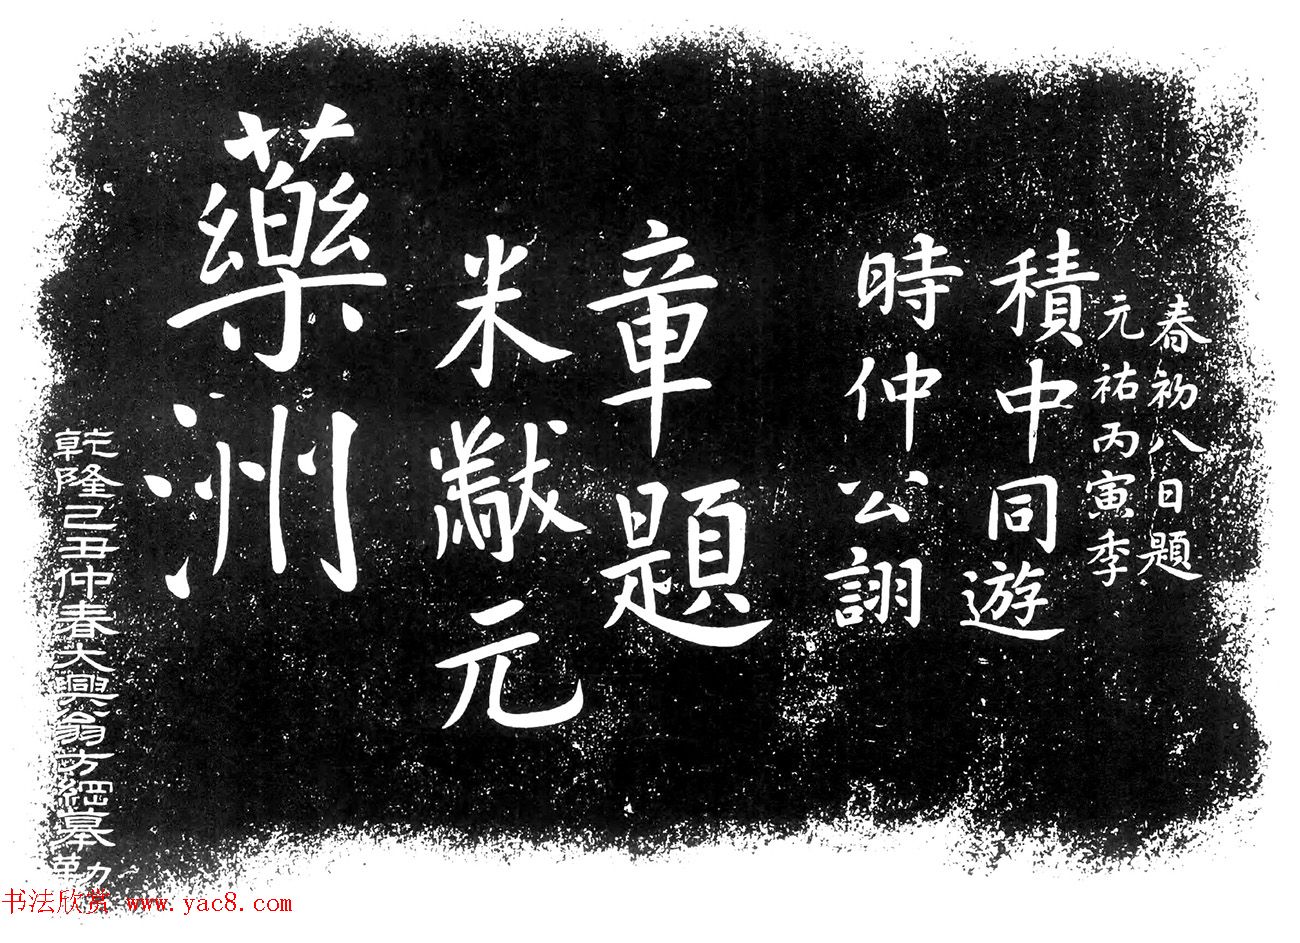 藥洲
米黻元
章題
時仲公詡
積中同遊
元祐丙寅季
春初八日題
乾隆己丑仲春大興翁方綱摹勒
书法欣赏 www.yac8.com